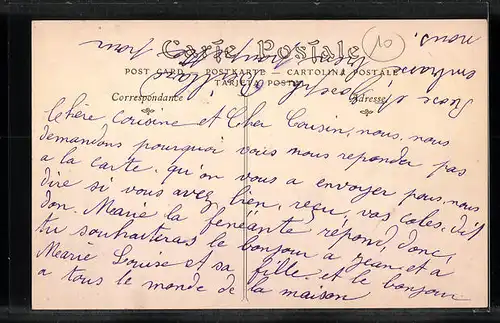 10
Carte Postale
POST CARD - POSTKARTE - CARTOLINA POSTALE
TARJETA POSTAL
Correspondance
Adresse
Chère cousine et Cher Cousin, nous nous
demandons pourquoi vous nous reponder pas
a la carte qu'on vous a envoyer pous nous
dire si vous avez bien reçu vos coles. dit
don. Marie la fenéante répond donc,
tu souhaiteras le bonjour a Jean et a
Marie Louise et sa fille et le bonjour
a tous le monde de la maison
pour
nous.